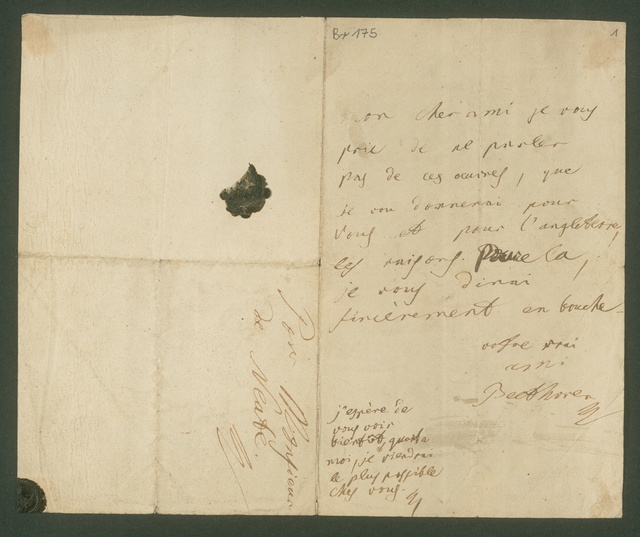 Br 175
1
mon cher ami je vous
prie de ne parler
pas de ces œuvres, que
je vou donnerai pour
vous et pour l'angleterre,
les raisons pour cela,
je vous dirai
sincèrement en bouche –
votre vrai
ami
Beethoven
j'espère de
vous voir
bientôt, quant a
moi, je viendrai
le plus possible
chez vous.
Pour Monsieur
de Neate.